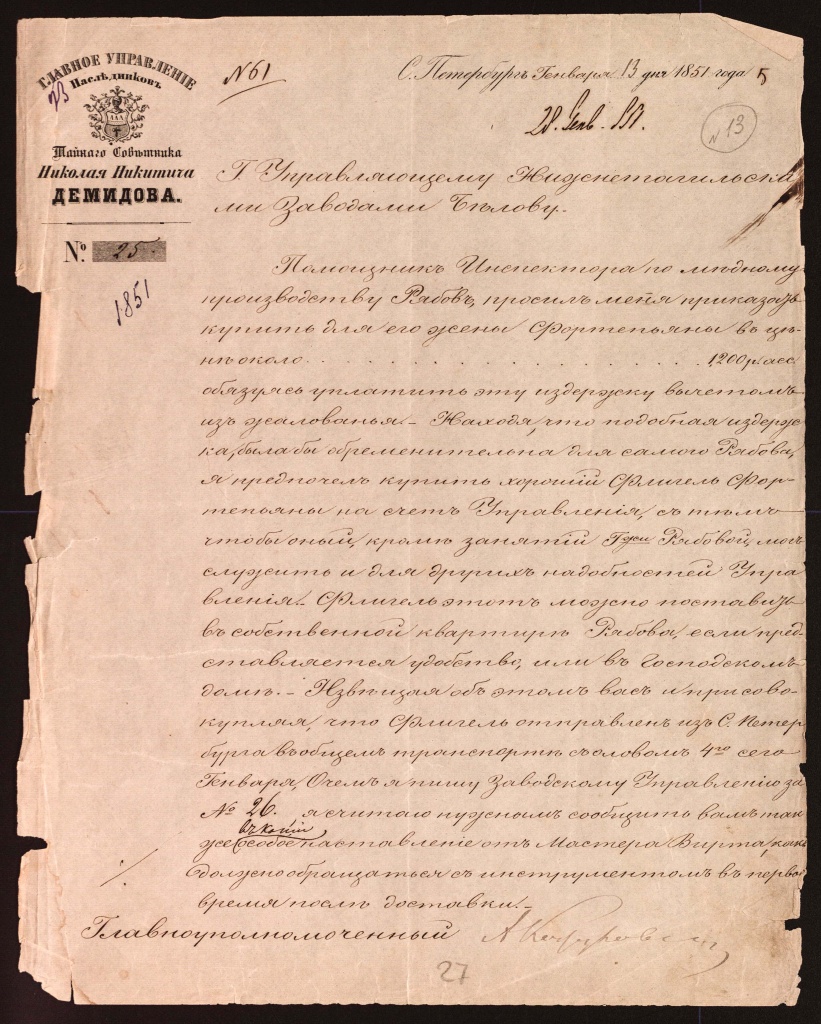 ГЛАВНОЕ УПРАВЛЕНІЕ
Наслѣдниковъ
Тайнаго Совѣтника
Николая Никитича
ДЕМИДОВА.
№ 25.
1851
23
№ 61
С. Петербургъ Генваря 13 дня 1851 года
5
28. Генв. 851.
№ 13
Г. Управляющему Нижнетагильски
ми Заводами Бѣлову.
Помощникъ Инспектора по мѣдному
производству Рябовъ, просилъ меня приказать
купить для его жены Фортепьяны въ цѣ-
нѣ около . . . . . . . . . . . . . 1,200 р. асс.
обязуясь уплатить эту издержку вычетомъ
изъ жалованья. – Находя, что подобная издерж
ка, была бы обременительна для самого Рябова,
я предпочелъ купить хорошій Флигель Фор-
тепьяны на счетъ Управленія, съ тѣмъ
чтобы оный, кромѣ занятій Гжи Рябовой, мог
служить и для другихъ надобностей Упра
вленія. – Флигель этотъ можно поставить
въ собственной квартирѣ Рябова, если пред-
ставляется удобство, или въ Господскомъ
домѣ. – Извѣщая объ этомъ васъ и присово-
купляя, что Флигель отправленъ изъ С. Петер
бурга въ общемъ транспортѣ съ оловомъ 4го сего
Генваря, О чемъ я пишу Заводскому Управленію за
№ 26. я считаю нужнымъ сообщить вамъ так
въ копіи
же особое наставленіе отъ Мастера Вирта, какъ
должно обращаться съ инструментомъ въ перво
время послѣ доставки. –
Главноуполномоченный
27